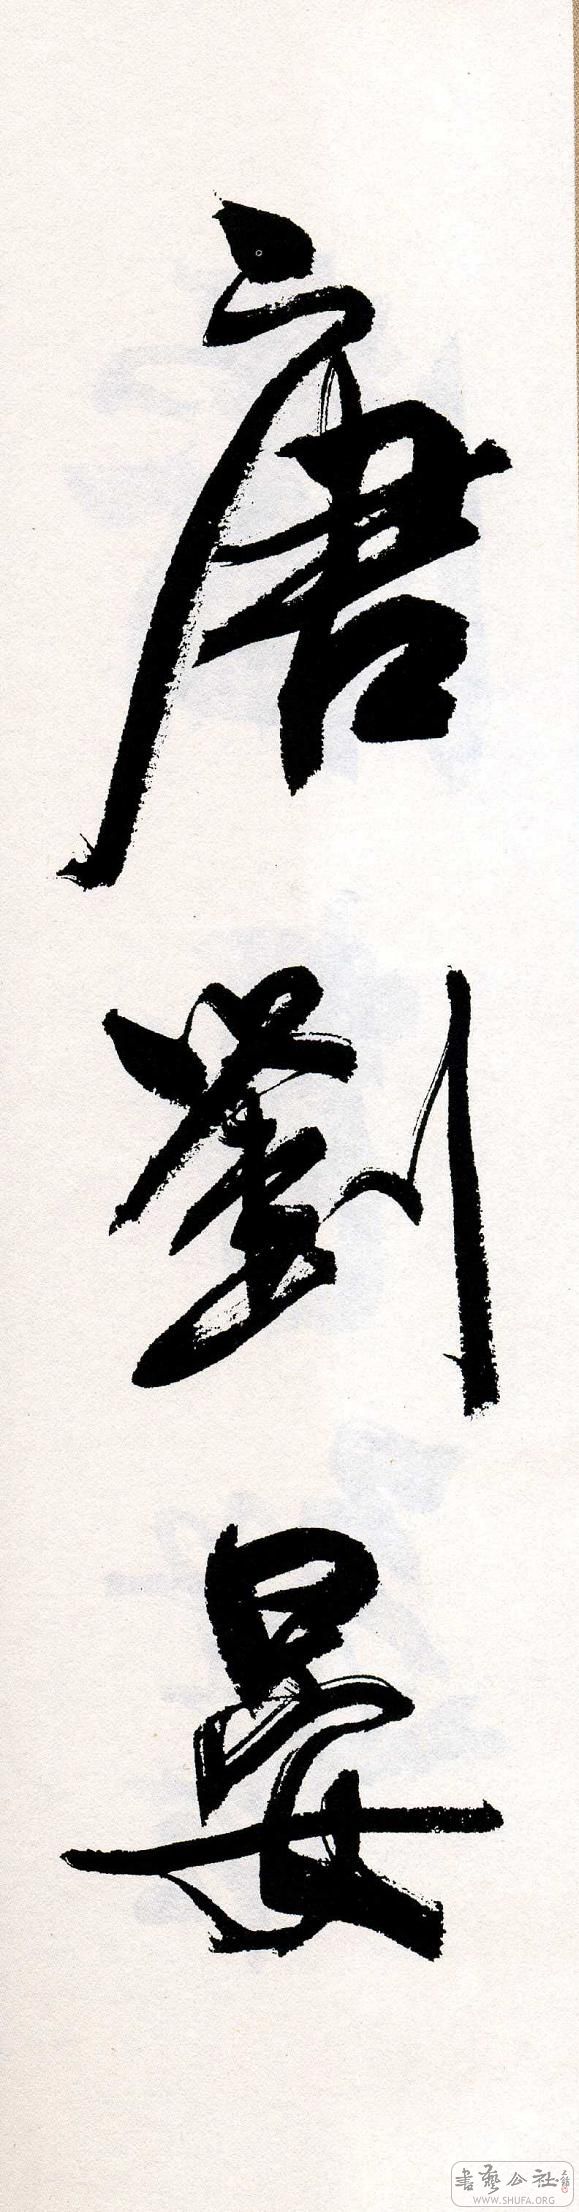 唐劉晏
書藝公社
WWW.SHUFA.ORG